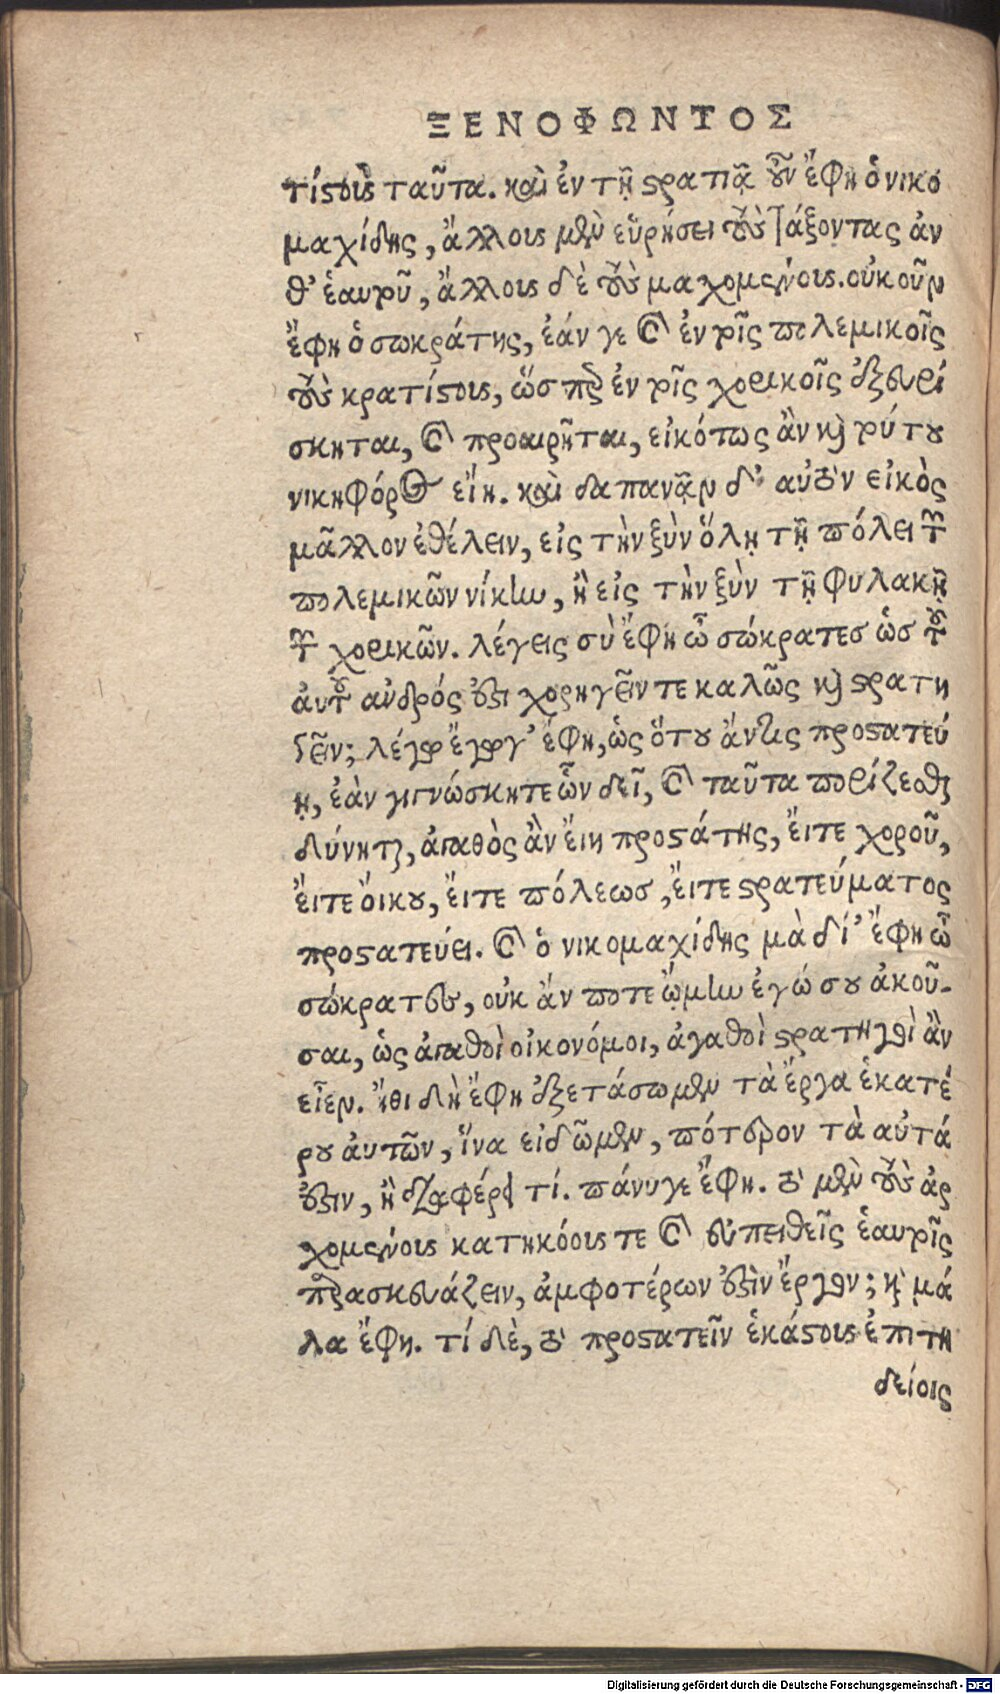 ΞΕΝΟΦΩΝΤΟΣ
τίϛους ταῦτα. καὶ ἐν τῇ ϛρατιᾷ οὖν ἔφη ὁ νικο
μαχίδης, ἄλλους μὲν εὑρήσει τοὺς τάξοντας ἀν
θ' ἑαυτοῦ, ἄλλους δὲ τοὺς μαχομένους. οὐκοῦν
ἔφη ὁ σωκράτης, ἐάν γε καὶ ἐν τοῖς πολεμικοῖς
τοὺς κρατίϛους, ὥσπερ ἐν τοῖς χορικοῖς ἐξευρί
σκηται, καὶ προαιρῆται, εἰκότως ἂν καὶ τούτου
νικηφόρος εἴη. καὶ δαπανᾷν δ' αὐτὸν εἰκὸς
μᾶλλον ἐθέλειν, εἰς τὴν ξὺν ὅλῃ τῇ πόλει τῶν
πολεμικῶν νίκην, ἢ εἰς τὴν ξὺν τῇ φυλακῇ
τῶν χορικῶν. λέγεις σὺ ἔφη ὦ σώκρατεσ ὡσ τοῦ
ἀυτοῦ ἀνδρός ἐϛι χορηγεῖν τε καλῶς καὶ ϛρατη
γεῖν; λέγω ἔγωγ' ἔφη, ὡς ὅτου ἄν τις προϛατεύ
ῃ, ἐὰν γιγνώσκητε ὧν δεῖ, καὶ ταῦτα πορίζεσθαι
δύνηται, ἀγαθὸς ἂν ἔιη προϛάτης, ἔιτε χοροῦ,
ἔιτε ὄικου, ἔιτε πόλεωσ, ἔιτε ϛρατεύματος
προϛατεύει. καὶ ὁ νικομαχίδης μὰ δί' ἔφη ὦ
σώκρατες, οὐκ ἄν ποτε ᾤμην ἐγώ σου ἀκοῦ-
σαι, ὡς ἀγαθοὶ οἰκονόμοι, ἀγαθοὶ ϛρατηγοὶ ἂν
εἶεν. ἴθι δὴ ἔφη ἐξετάσωμεν τὰ ἔργα ἑκατέ
ρου ἀυτῶν, ἵνα εἰδῶμεν, πότερον τὰ αὐτά
ἐϛιν, ἢ διαφέρει τί. πάνυγε ἔφη. τὸ μὲν τοὺς ἀρ
χομένους κατηκόους τε καὶ εὐπειθεῖς ἑαυτοῖς
παρασκευάζειν, ἀμφοτέρων ἐϛὶν ἔργον; καὶ μά
λα ἔφη. τί δὲ, τὸ προϛατεῖν ἑκάϛοις ἐπιτη
δείοις
Digitalisierung gefördert durch die Deutsche Forschungsgemeinschaft - DFG